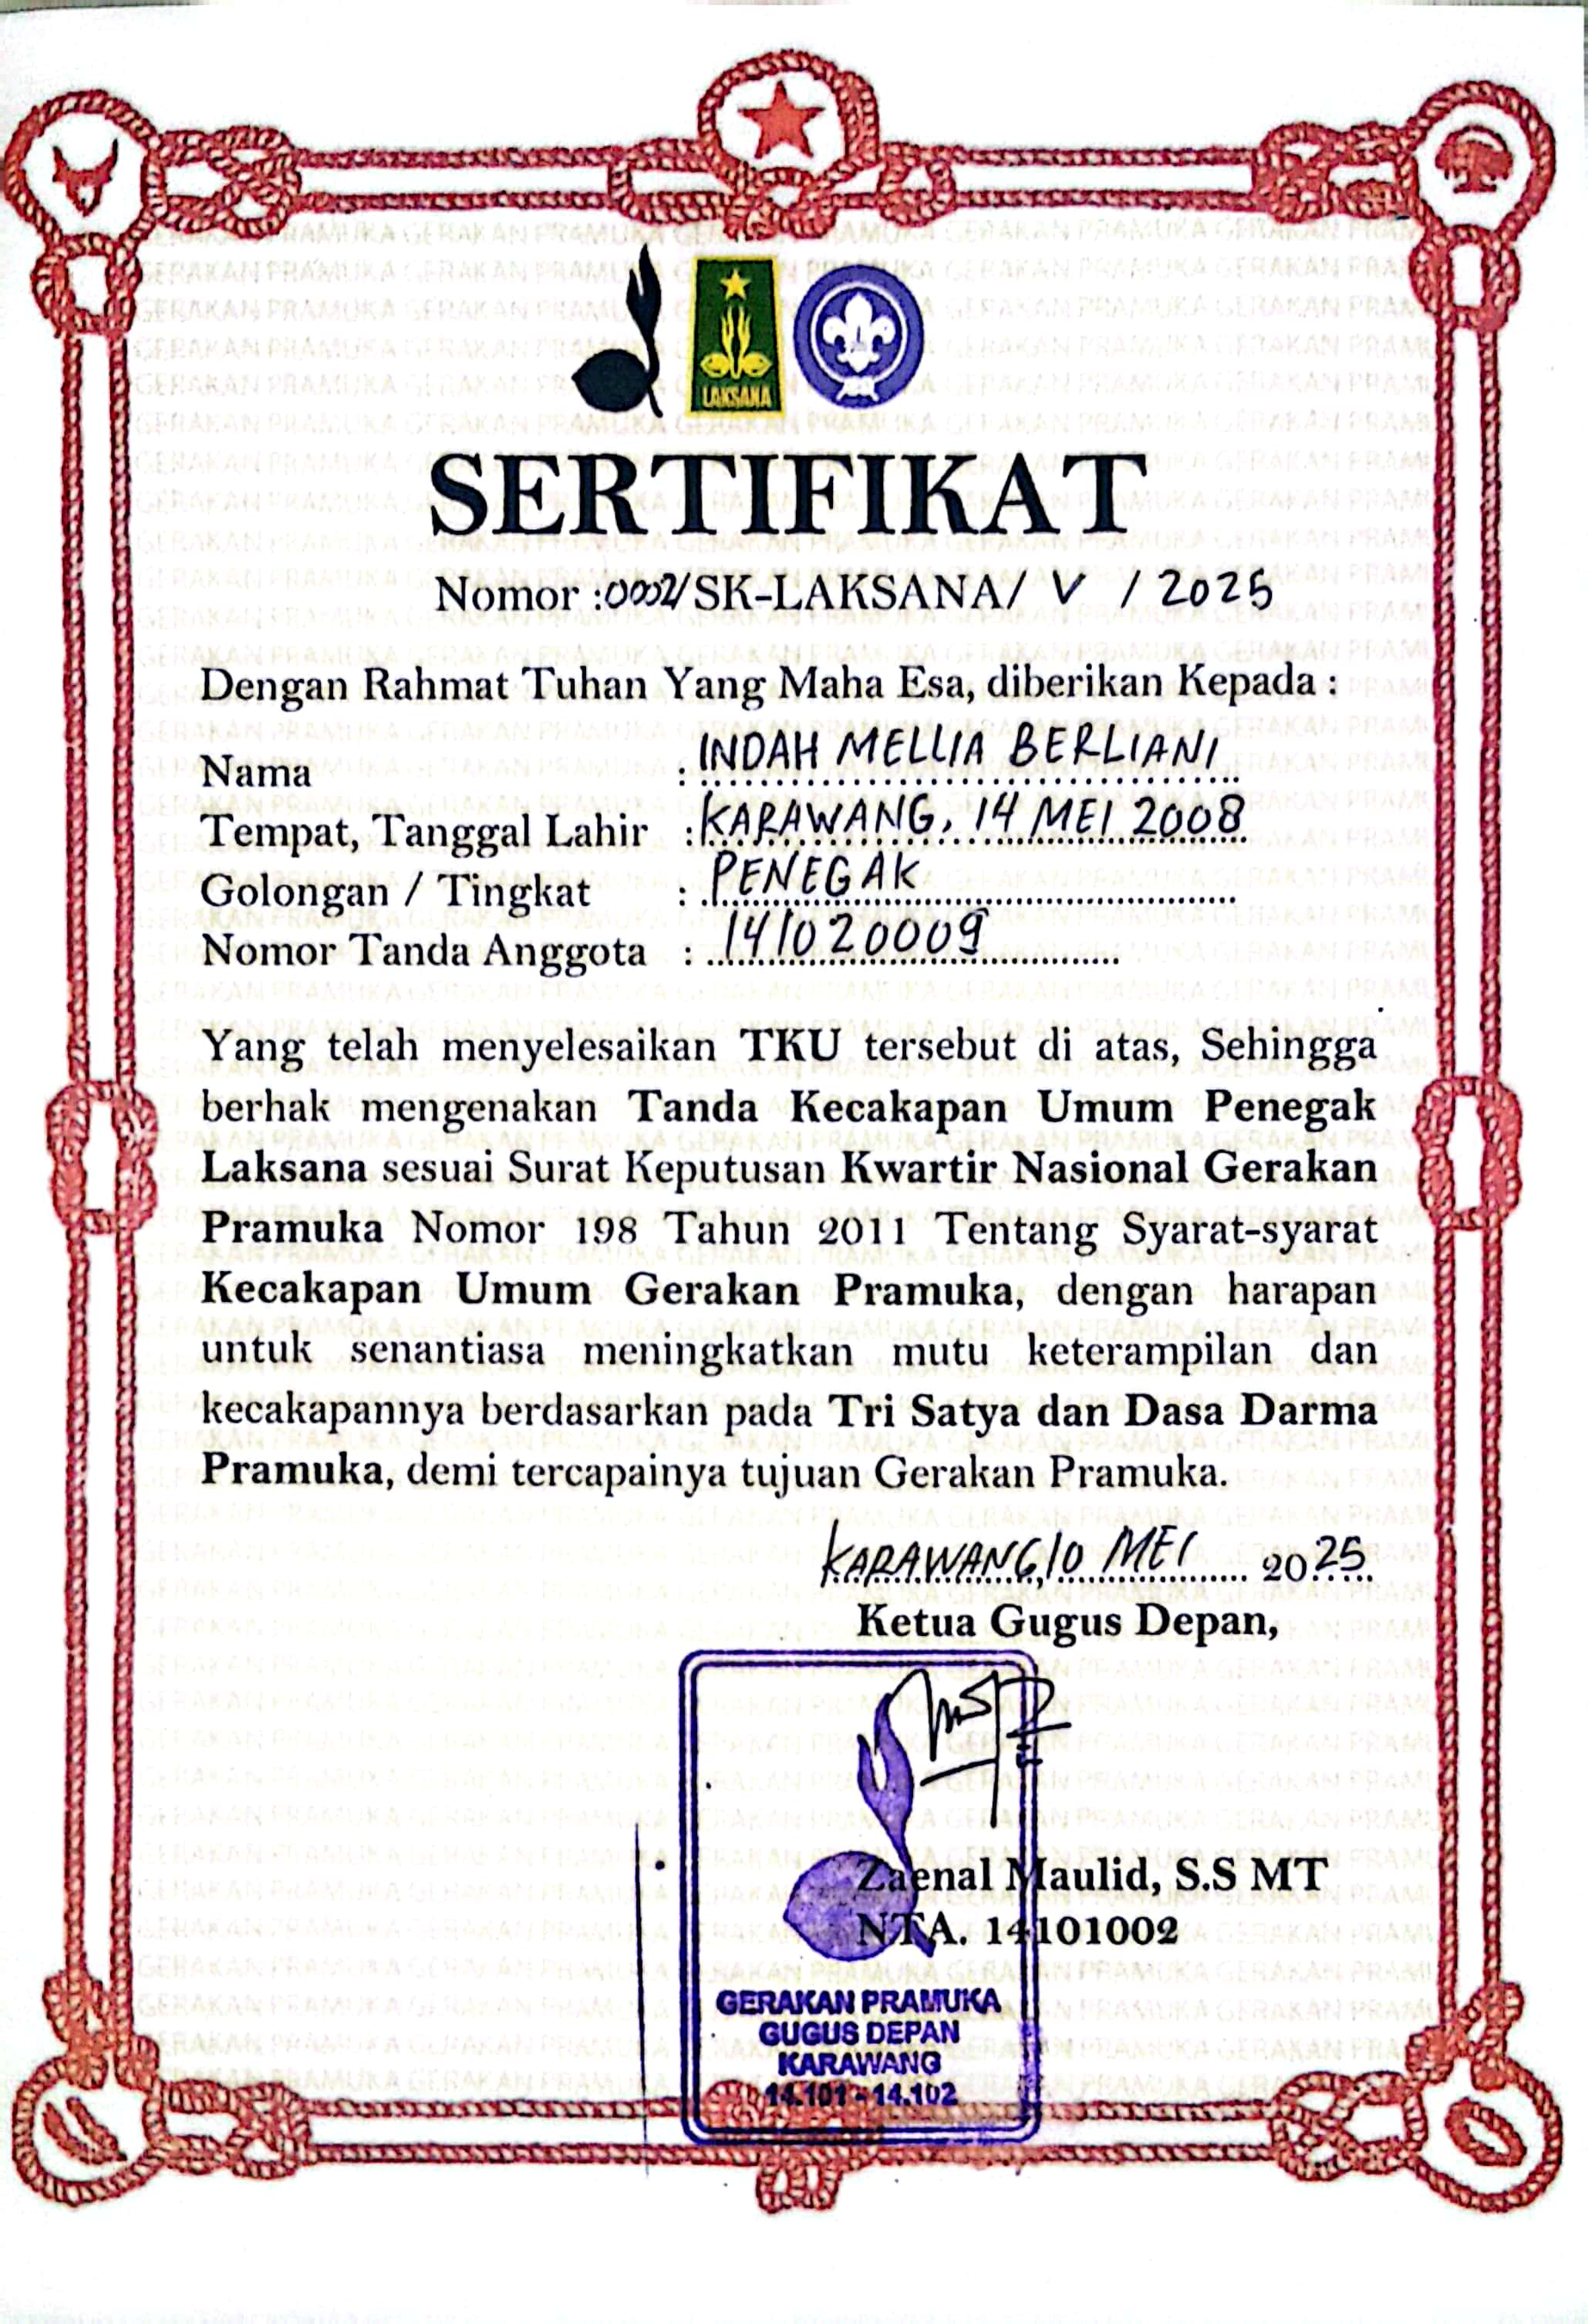 LAKSANA
SERTIFIKAT
Nomor :0002/SK-LAKSANA/ V / 2025
Dengan Rahmat Tuhan Yang Maha Esa, diberikan Kepada :
Nama : INDAH MELLIA BERLIANI
Tempat, Tanggal Lahir : KARAWANG, 14 MEI 2008
Golongan / Tingkat : PENEGAK
Nomor Tanda Anggota : 141020009
Yang telah menyelesaikan TKU tersebut di atas, Sehingga
berhak mengenakan Tanda Kecakapan Umum Penegak
Laksana sesuai Surat Keputusan Kwartir Nasional Gerakan
Pramuka Nomor 198 Tahun 2011 Tentang Syarat-syarat
Kecakapan Umum Gerakan Pramuka, dengan harapan
untuk senantiasa meningkatkan mutu keterampilan dan
kecakapannya berdasarkan pada Tri Satya dan Dasa Darma
Pramuka, demi tercapainya tujuan Gerakan Pramuka.
KARAWANG, 10 MEI 2025
Ketua Gugus Depan,
Zaenal Maulid, S.S MT
NTA. 14101002
GERAKAN PRAMUKA
GUGUS DEPAN
KARAWANG
14.101 - 14.102